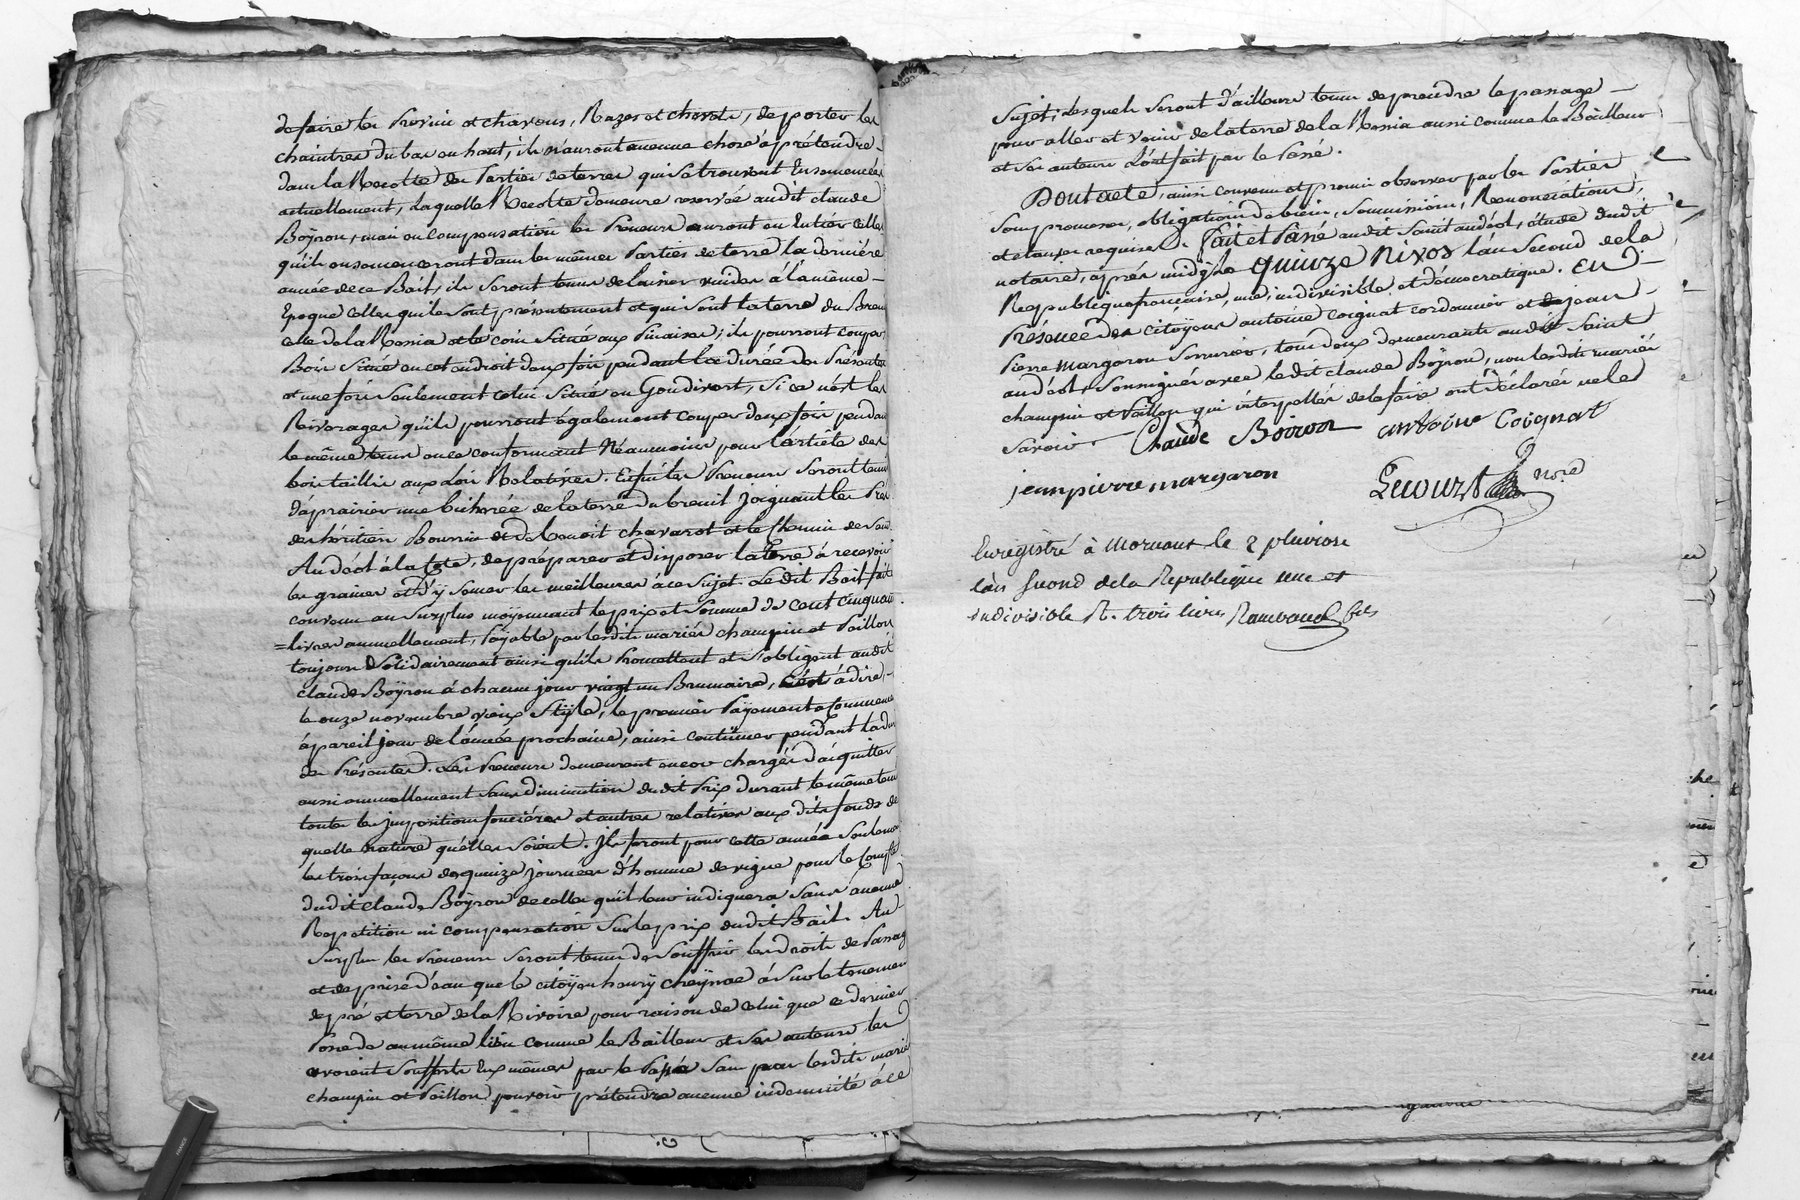 de faire les Provins et chavons, Razes et chevets, de porter les
chaintres du bas en haut, ils n'auront aucune chose à prétendre
dans la Recolte des Parties de terres qui se trouvent Ensemencées
actuellement, laquelle Recolte demeure reservée audit claude
Boÿron, mais en compensation les Preneurs auront en Entier celles
qu'ils ensemenceront dans les mêmes Parties de terre la dernière
année de ce Bail, ils seront tenus de laisser vuides à la même
Epoque celles qui le sont présentement et qui sont la terre du Breuil
celle de la Rossia et le coin situé aux Pinaises; ils pourront couper
Bois situé en cet endroit deux fois pendant la durée des Présentes
et une fois seulement celui situé en Goudivert, si ce n'est les
Rivorages qu'ils pourront également couper deux fois pendant
le même tems en se conformant Néanmoins pour l'article des
bois taillis aux Loix Relatives. Enfin les Preneurs seront tenus
d'aprairier une bicherée de la terre du breuil joignant les Prés
des héritiers Bournin et de Benoit chavarot et le Chemin de Saint
Andéol à la Côte, de préparer et disposer la terre à recevoir
les graines et d'y semer les meilleures à ce sujet. Le dit Bail fait
convenu au surplus moÿennant le prix et somme de cent cinquante
=livres annuellement, Paÿable par lesdits mariés champin et Paillon
toujours solidairement ainsi qu'ils Promettent et s'obligent audit
claude Boÿron à chacun jour vingt un Brumaire, c'est à dire
le onze novembre vieux stÿle, le premier Paÿement à commencer
à pareil jour de l'année prochaine, ainsi continuer pendant la durée
des Présentes. Les Preneurs demeurent encor chargés d'aquitter
aussi annuellement sans diminution dudit Prix durant le même tems
toutes les impositions foncières et autres relatives aux dits fonds de
quelle nature qu'elles soient. Ils feront pour cette année seulement
les trois façons de quinze journées d'homme de vigne pour le compte
dudit claude Boÿron de celles qu'il leur indiquera sans aucune
Repetition ni compensation sur le prix dudit Bail. Au
surplus les Preneurs seront tenus de souffrir les droits de Passage
et de prise d'eau que le citoÿen henrÿ cheÿnac a sur le tenement
de pré et terre de la Rivoire pour raison de celui que ce dernier
Possede au même lieu comme le Bailleur et ses auteurs les
avoient soufferts Eux mêmes par le Passé sans que lesdits mariés
champin et Paillon pouvoir prétendre aucune indemnité à ce
sujet; lesquels seront d'ailleurs tenus de prendre le passage
pour aller et venir de la terre de la Rossia aussi comme le Bailleur
et ses auteurs l'ont fait par le Passé.
Dont acte, ainsi convenu et promis observer par les Parties
sous promesses, obligation de biens, soumissions, Renonciations,
et clauses requises. Fait et Passé audit Saint andéol, étude dudit
notaire, après midy, Le Quinze Nivos l'an second de la
Republique française, une, indivisible et démocratique. En
Présence des citoÿens antoine coignat cordonnier et de jean
Pierre margaron serrurier, tous deux demeurants audit Saint
andéol, soussignés avec le dit claude Boÿron, non lesdits mariés
champin et Paillon qui interpellés de le faire ont déclaré ne le
savoir. Claude Boiron antoine Coignat
jean pierre margaron
Lecourt Nre
Enregistré à Mornant le 2 pluviose
l'an second de la Republique une et
indivisible R. trois livres Raimbaud fils